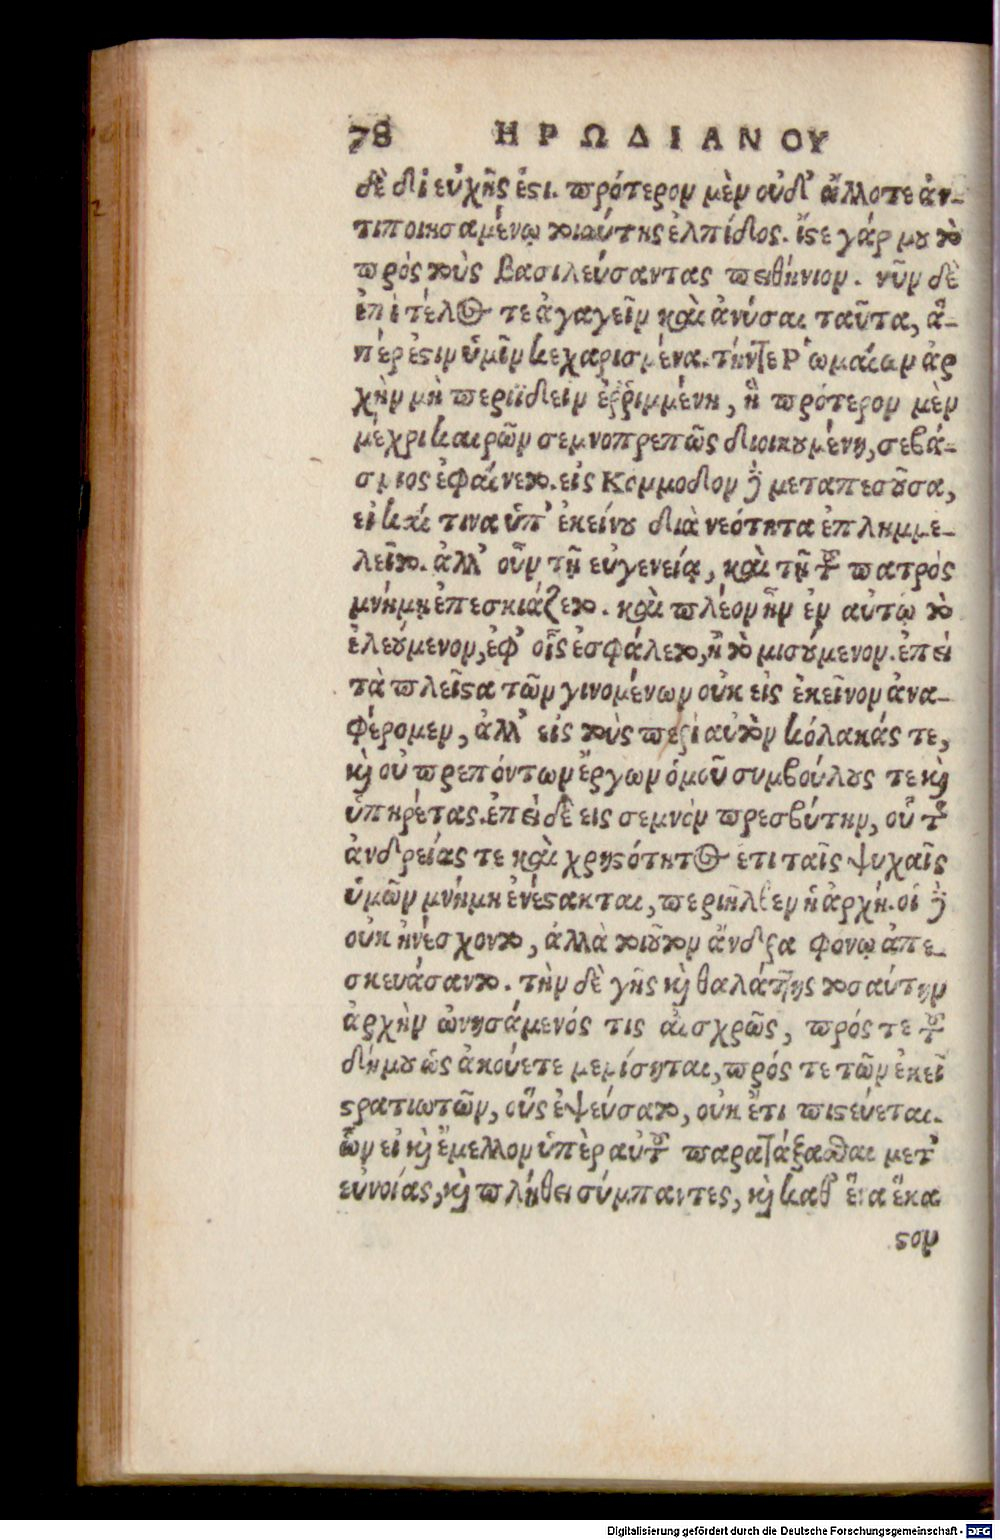 78 ΗΡΩΔΙΑΝΟΥ
δὲ δι' εὐχῆς ἐστι. πρότερον μὲν οὐδ' ἄλλοτε ἀν-
τιποιησαμένῳ τοιαύτης ἐλπίδος. ἴστε γάρ μου τὸ
πρὸς τοὺς βασιλεύσαντας πειθήνιον. νῦν δὲ
ἐπὶ τέλος τε ἀγαγεῖν καὶ ἀνύσαι ταῦτα, ἅ-
πέρ ἐστιν ὑμῖν κεχαρισμένα. τήν τε Ῥωμαίων ἀρ
χὴν μὴ περιϊδεῖν ἐῤῥιμμένη, ἣ πρότερον μὲν
μέχρι καιρῶν σεμνοπρεπῶς διοικουμένη, σεβά-
σμιος ἐφαίνετο. εἰς Κόμμοδον δὲ μεταπεσοῦσα,
εἰ καί τινα ὑπ' ἐκείνου διὰ νεότητα ἐπλημμε-
λεῖτο. ἀλλ' οὖν τῇ εὐγενείᾳ, καὶ τῇ τοῦ πατρὸς
μνήμῃ ἐπεσκιάζετο. καὶ πλέον ἦν ἐν αὐτῷ τὸ
ἐλεούμενον, ἐφ' οἷς ἐσφάλετο, ἢ τὸ μισούμενον. ἐπεὶ
τὰ πλεῖστα τῶν γινομένων οὐκ εἰς ἐκεῖνον ἀνα-
φέρομεν, ἀλλ' εἰς τοὺς περὶ αὐτὸν κόλακάς τε,
καὶ οὐ πρεπόντων ἔργων ὁμοῦ συμβούλους τε καὶ
ὑπηρέτας. ἐπεὶ δὲ εις σεμνὸν πρεσβύτην, οὗ τῆς
ἀνδρείας τε καὶ χρηστότητος ἔτι ταῖς ψυχαῖς
ὑμῶν μνήμη ἐνέστακται, περιῆλθεν ἡ ἀρχή. οἱ δὲ
οὐκ ἠνέσχοντο, ἀλλὰ τοιοῦτον ἄνδρα φονῳ ἀπε-
σκευάσαντο. τὴν δὲ γῆς καὶ θαλάττης τοσαύτην
ἀρχὴν ὠνησάμενός τις αἰσχρῶς, πρός τε τοῦ
δήμου ὡς ἀκούετε μεμίσηται, πρός τε τῶν ἐκεῖ
στρατιωτῶν, οὓς ἐψεύσατο, οὐκ ἔτι πιστεύεται.
ὧν εἰ καὶ ἔμελλον ὑπὲρ αὐτοῦ παρατάξασθαι μετ'
εὐνοίας, καὶ πλήθει σύμπαντες, καὶ καθ' ἕνα ἕκα
στον
Digitalisierung gefördert durch die Deutsche Forschungsgemeinschaft - DFG